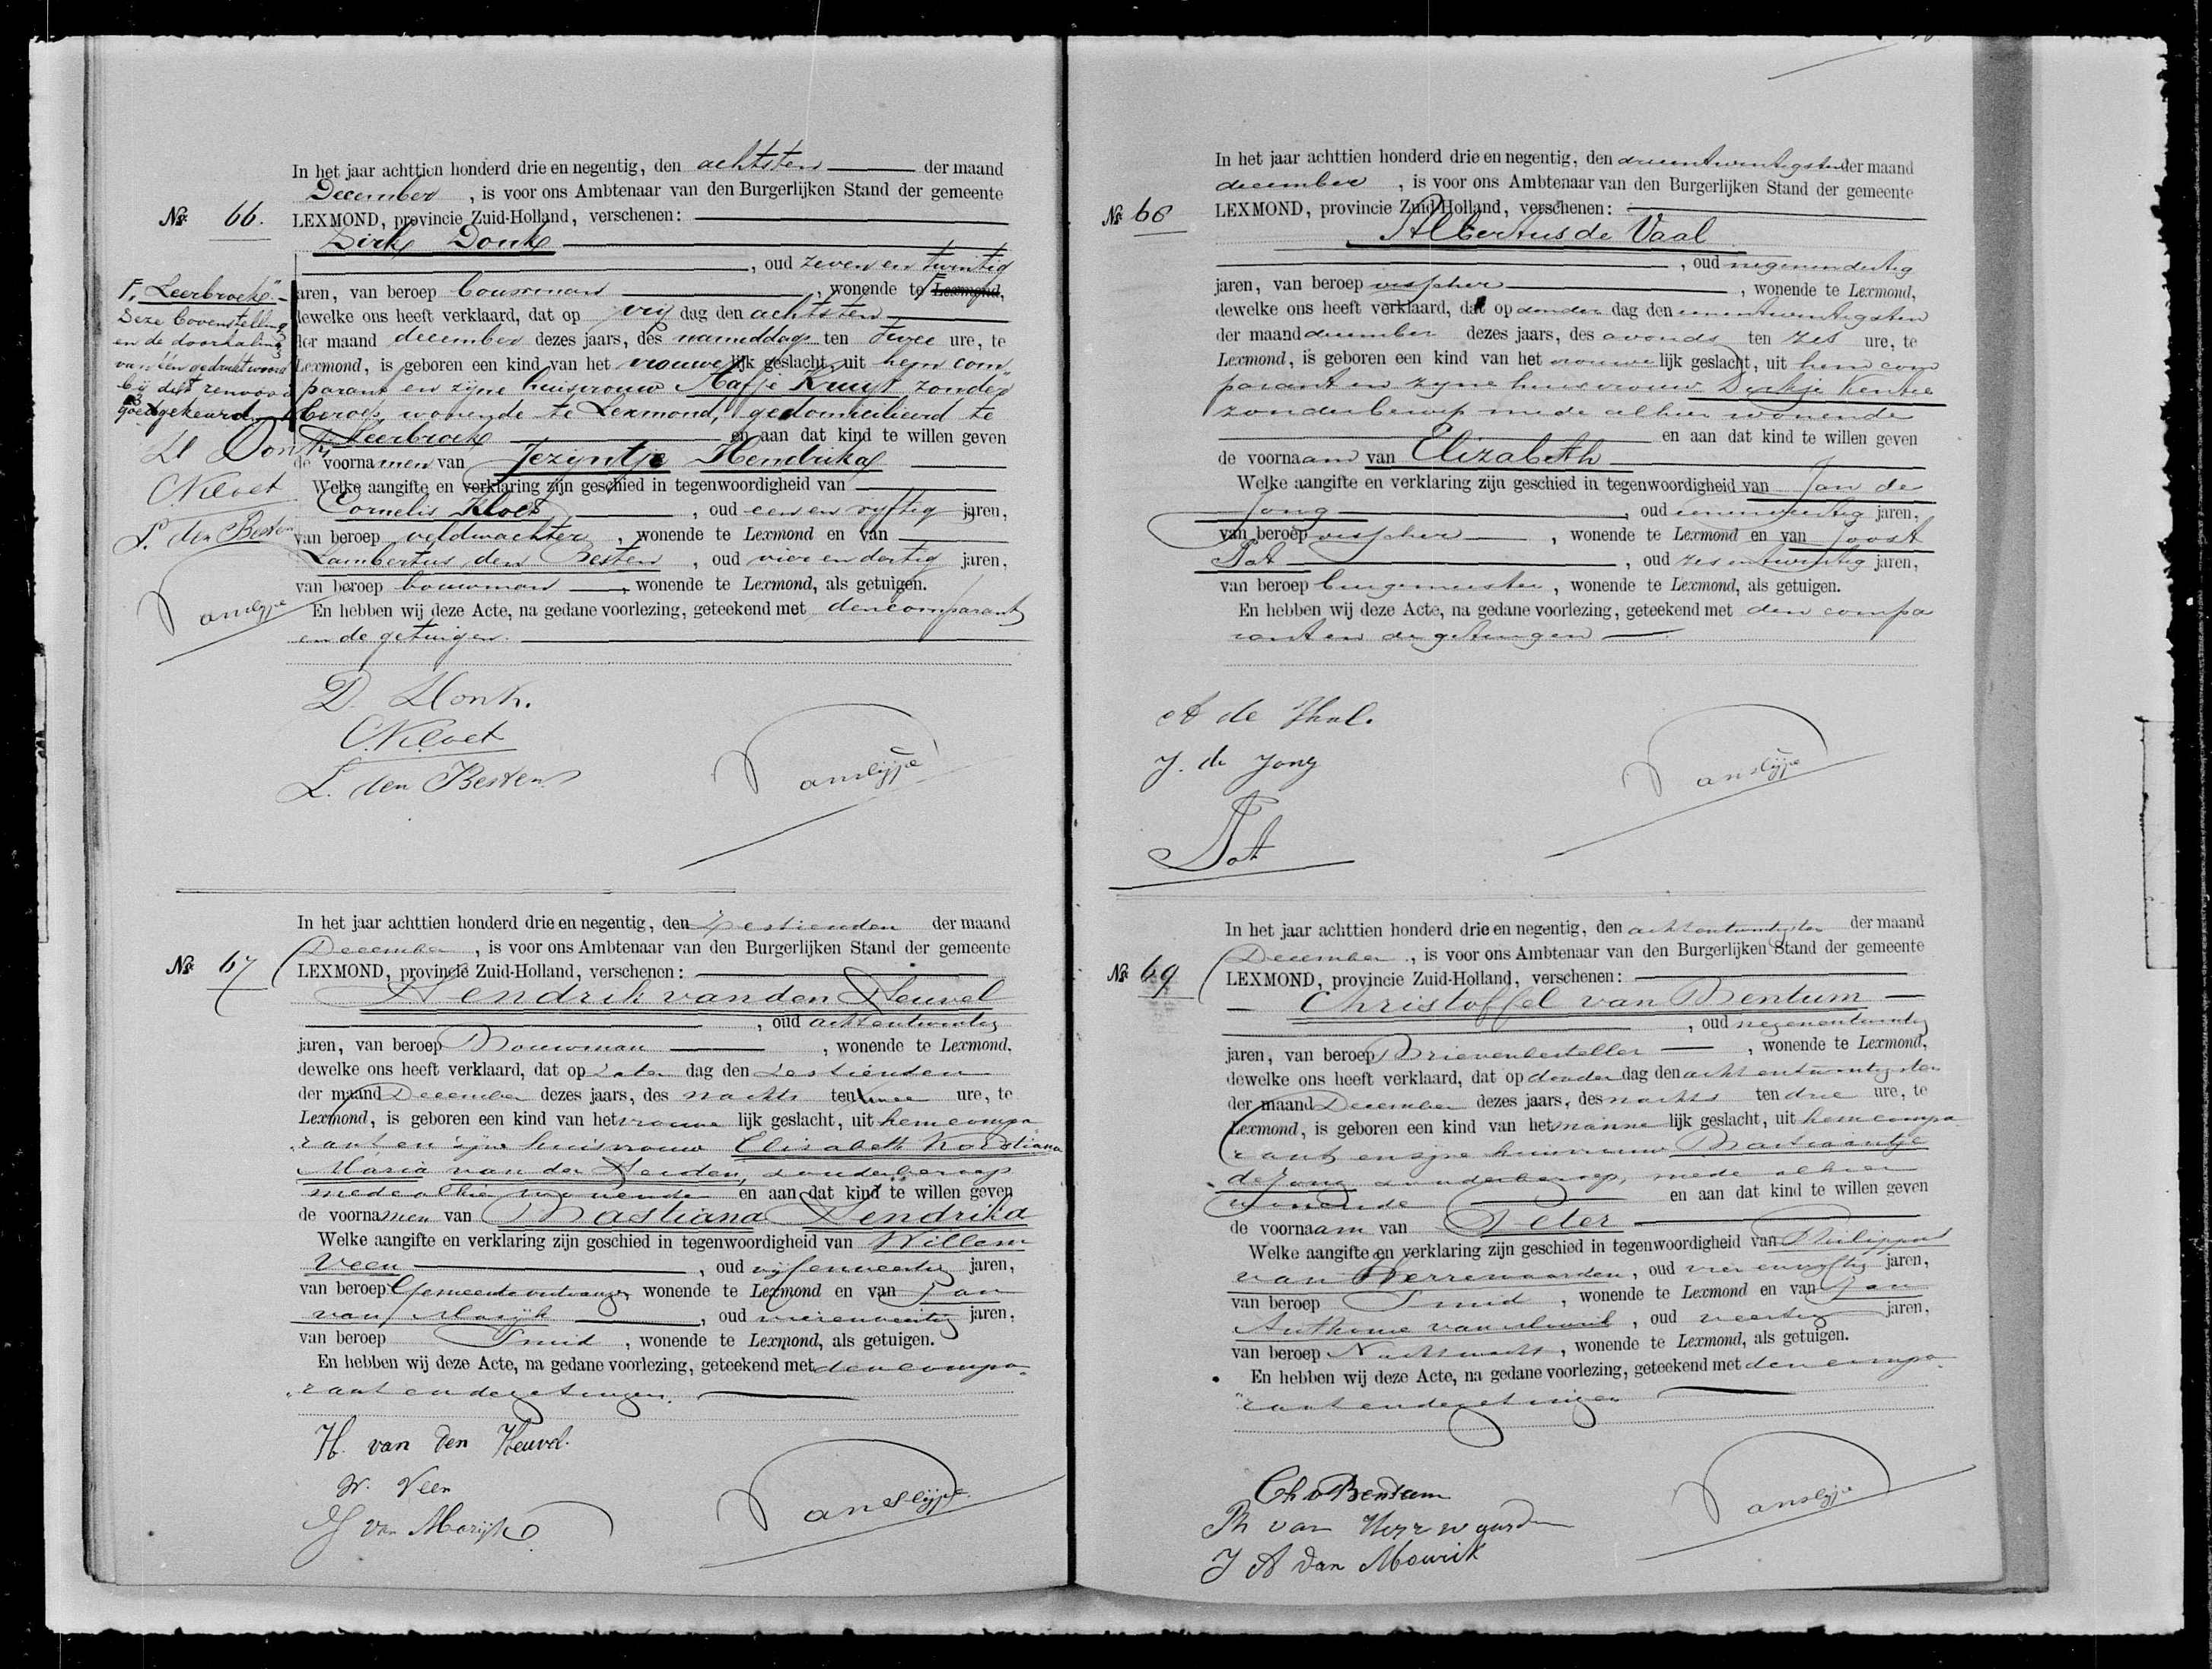 In het jaar achttien honderd drie en negentig, den achtsten der maand
December, is voor ons Ambtenaar van den Burgerlijken Stand der gemeente
No. 66. LEXMOND, provincie Zuid-Holland, verschenen:
Dirk Donk
, oud zeven en twintig
jaren, van beroep bouwman, wonende te Lexmond,
dewelke ons heeft verklaard, dat op vrij dag den achtsten
der maand december dezes jaars, des namiddags ten twee ure, te
Lexmond, is geboren een kind van het vrouwelijk geslacht, uit hem com"
parant en zijne huisvrouw Aafje Kruijt zonder
beroep, wonende te Lexmond, gedomicilieerd te
Leerbroek en aan dat kind te willen geven
de voornamen van Jezijntje Hendrika
Welke aangifte en verklaring zijn geschied in tegenwoordigheid van
Cornelis Kloet, oud een en vijftig jaren,
van beroep veldwachter, wonende te Lexmond en van
Lambertus den Besten, oud vier en dertig jaren,
van beroep bouwman, wonende te Lexmond, als getuigen.
En hebben wij deze Acte, na gedane voorlezing, geteekend met den comparant
en de getuigen.
"Leerbroek"
Deze bovenstelling
en de doorhaling
van één gedrukt woord
bij dit renvooi
goedgekeurd
D Donk
C Kloet
L. den Besten
Vanslijpe
D. Donk.
C. Kloet
L. den Besten
Vanslijpe
In het jaar achttien honderd drie en negentig, den zestienden der maand
December, is voor ons Ambtenaar van den Burgerlijken Stand der gemeente
No. 67 LEXMOND, provincie Zuid-Holland, verschenen:
Hendrik van den Heuvel
, oud achtentwintig
jaren, van beroep Bouwman, wonende te Lexmond,
dewelke ons heeft verklaard, dat op Zater dag den zestienden
der maand December dezes jaars, des nachts ten twee ure, te
Lexmond, is geboren een kind van het vrouwelijk geslacht, uit hem compa
rant en zijne huisvrouw Elisabeth Korstiana
Maria van der Heiden, zonder beroep
mede alhier wonende en aan dat kind te willen geven
de voornamen van Bastiana Hendrika
Welke aangifte en verklaring zijn geschied in tegenwoordigheid van Willem
Veen, oud vijfenveertig jaren,
van beroep Gemeenteontvanger wonende te Lexmond en van Jan
van Marijk, oud vierenveertig jaren,
van beroep Smid, wonende te Lexmond, als getuigen.
En hebben wij deze Acte, na gedane voorlezing, geteekend met den compa
rant en de getuigen.
H. van den Heuvel.
W. Veen
J van Marijk
Vanslijpe
In het jaar achttien honderd drie en negentig, den drieentwintigsten der maand
december, is voor ons Ambtenaar van den Burgerlijken Stand der gemeente
No. 68 LEXMOND, provincie Zuid-Holland, verschenen:
Albertus de Vaal
, oud negenendertig
jaren, van beroep visscher, wonende te Lexmond,
dewelke ons heeft verklaard, dat op donder dag den eenentwintigsten
der maand december dezes jaars, des avonds ten zes ure, te
Lexmond, is geboren een kind van het vrouwelijk geslacht, uit hem com
parant en zijne huisvrouw Dirkje Kentie
zonder beroep mede alhier wonende
en aan dat kind te willen geven
de voornaam van Elizabeth
Welke aangifte en verklaring zijn geschied in tegenwoordigheid van Jan de
Jong, oud jaren,
van beroep visscher, wonende te Lexmond en van Joost
Pot, oud zesentwintig jaren,
van beroep burgemeester, wonende te Lexmond, als getuigen.
En hebben wij deze Acte, na gedane voorlezing, geteekend met den compa
rant en de getuigen
A de Vaal.
J. de Jong
Pot
Vanslijpe
In het jaar achttien honderd drie en negentig, den achtentwintigsten der maand
December, is voor ons Ambtenaar van den Burgerlijken Stand der gemeente
No. 69 LEXMOND, provincie Zuid-Holland, verschenen:
Christoffel van Bentum
, oud negenentwintig
jaren, van beroep Brievenbesteller, wonende te Lexmond,
dewelke ons heeft verklaard, dat op donder dag den achtentwintigsten
der maand December dezes jaars, des nachts ten drie ure, te
Lexmond, is geboren een kind van het mannelijk geslacht, uit hem compa
rant en zijne huisvrouw Bastiaantje
de Jong zonder beroep, mede alhier
wonende en aan dat kind te willen geven
de voornaam van Peter
Welke aangifte en verklaring zijn geschied in tegenwoordigheid van Philippus
van Herrewaarden, oud vier en vijftig jaren,
van beroep Smid, wonende te Lexmond en van Jan
Anthonie van Mourik, oud veertig jaren,
van beroep Nachtwacht, wonende te Lexmond, als getuigen.
En hebben wij deze Acte, na gedane voorlezing, geteekend met den compa
rant en de getuigen
Ch v Bentum
Ph van Herrewaarden
J A van Mourik
Vanslijpe